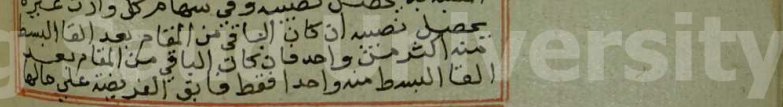 يحصل نصيبه وفي سهام كل وارث غيره
يحصل نصيبه ان كان الباقي من المقام بعد القا البسط
منه اكثر من واحد فان كان الباقي من المقام بعد
القا البسط منه واحدا فقط فابق الفريضة على حالها
versity